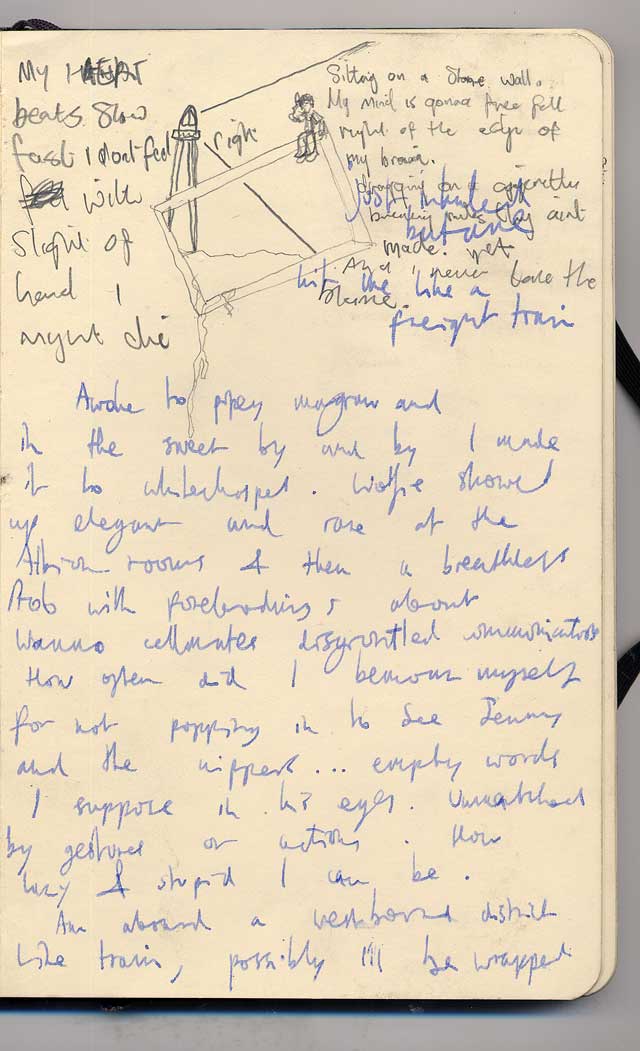 My HEART
beats Slow
fast I dont feel right
with
Slight of
hand I
might die
Sitting on a Stone wall.
My mind is gonna free fall
right of the edge of
my brain.
dragging on a cigarette
burning they aint
made. yet
And I never bare the
blame
just inhaled
butane
hit me like a
freight train
Awoke to and
in the sweet by and by I made
it to whitechapel. Wolfie showed
up elegant and rare at the
Albion rooms & then a breathless
Rob with forebodings about
cellmates disgruntled communications
How often did I bemoan myself
for not popping in to see Jenny
and the nippers... empty words
I suppose in his eyes. Unmatched
by gestures or actions. How
lazy & stupid I can be.
Am aboard a westbound district
line train, possibly I'll be wrapped